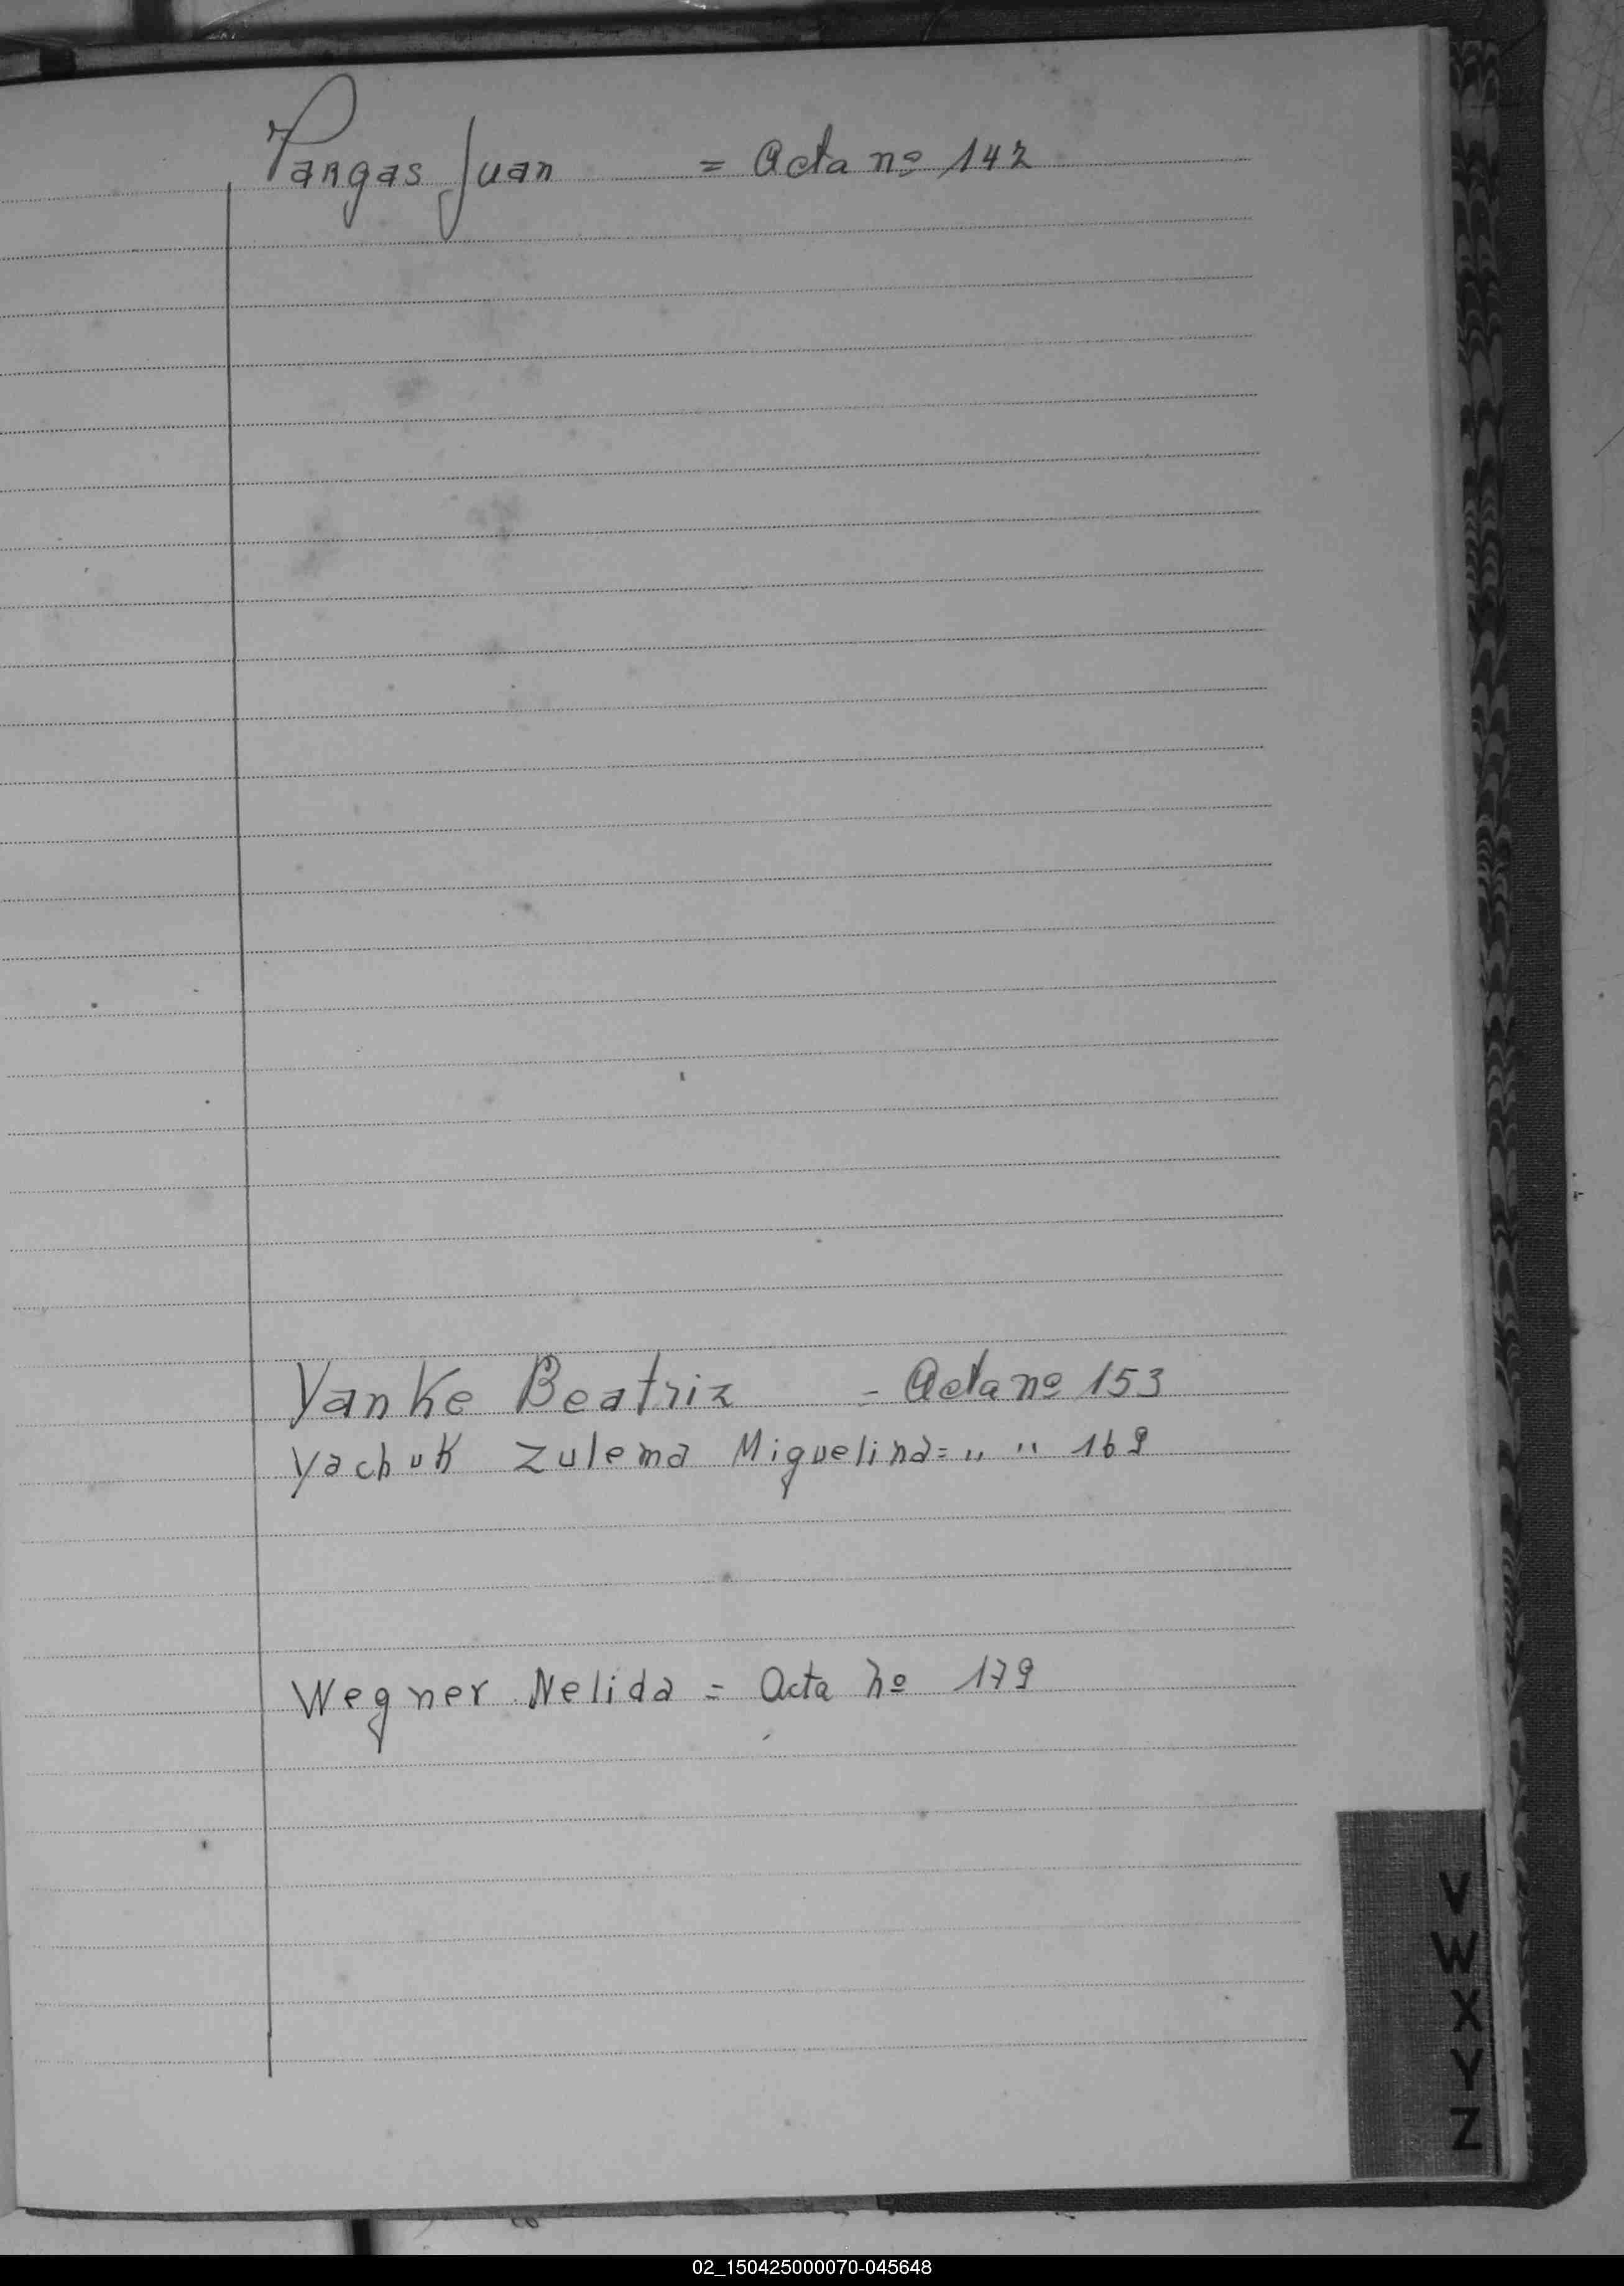 Vangas Juan = Acta nº 142
Yanke Beatriz = Acta nº 153
Yachuk Zulema Miguelina = " " 169
Wegner Nelida = Acta nº 179
V
W
X
Y
Z
02_150425000070-045648